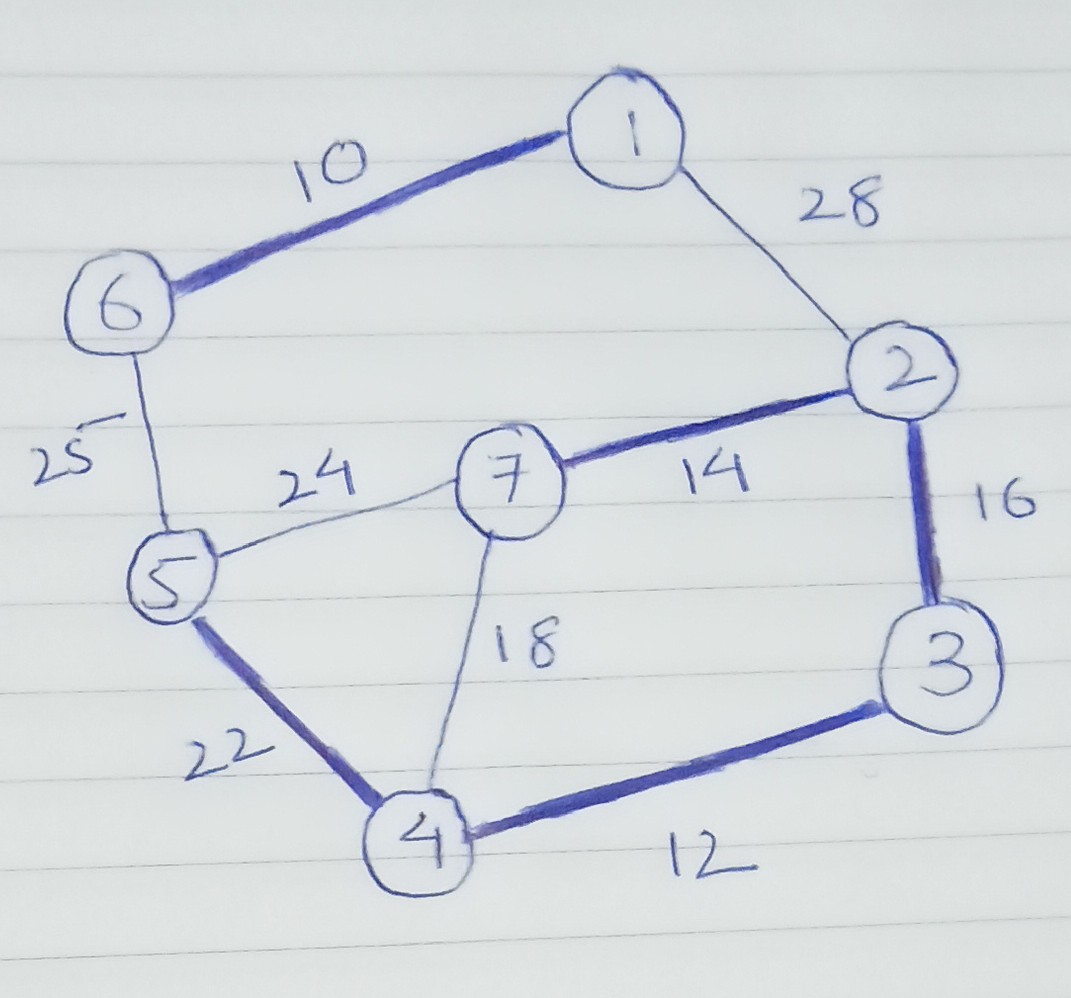 1
10
28
6
2
25
24
7
14
16
5
18
3
22
4
12